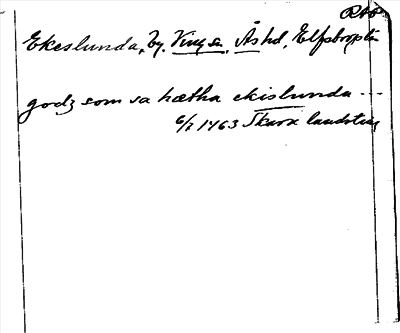 RAP
Ekeslunda, by. Vings sn, Ås hd, Elfsborgs län
godz som sa hætha ekislunda ...
6/2 1463 Skara landsting